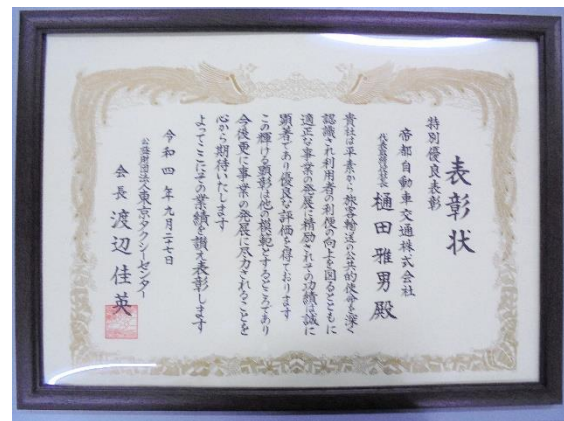 表彰状
特別優良表彰
帝都自動車交通株式会社
代表取締役社長 樋田雅男殿
貴社は平素から旅客輸送の公共的使命を深く
認識され利用者の利便の向上を図るとともに
適正な事業の発展に精励されその功績は誠に
顕著であり優良な評価を得ております
この輝ける顕彰は他の模範とするところであり
今後更に事業の発展に尽力されることを
心から期待いたします
よってここにその業績を讃え表彰します
令和四年九月二十七日
公益財団法人東京タクシーセンター
会長 渡辺佳英